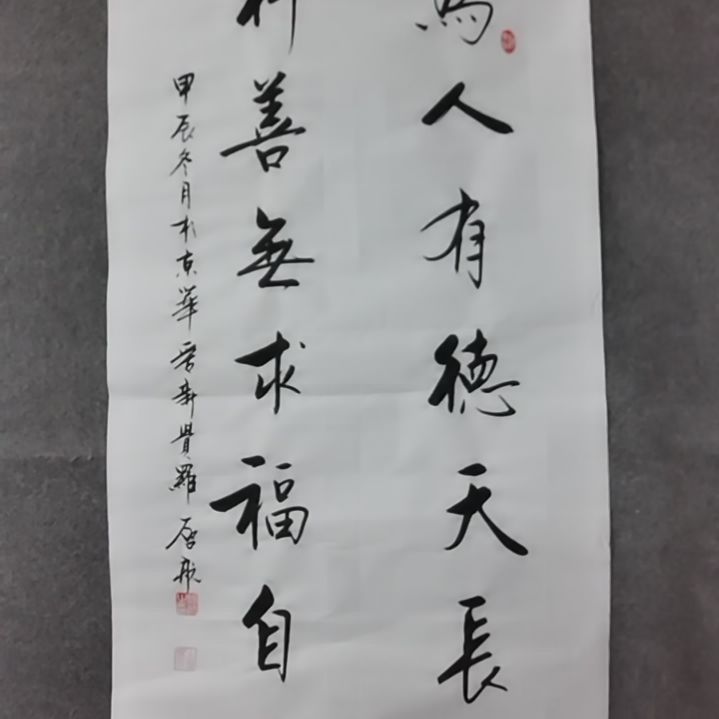 為人有德天長
行善無求福自
甲辰冬月於京華愛新覺羅